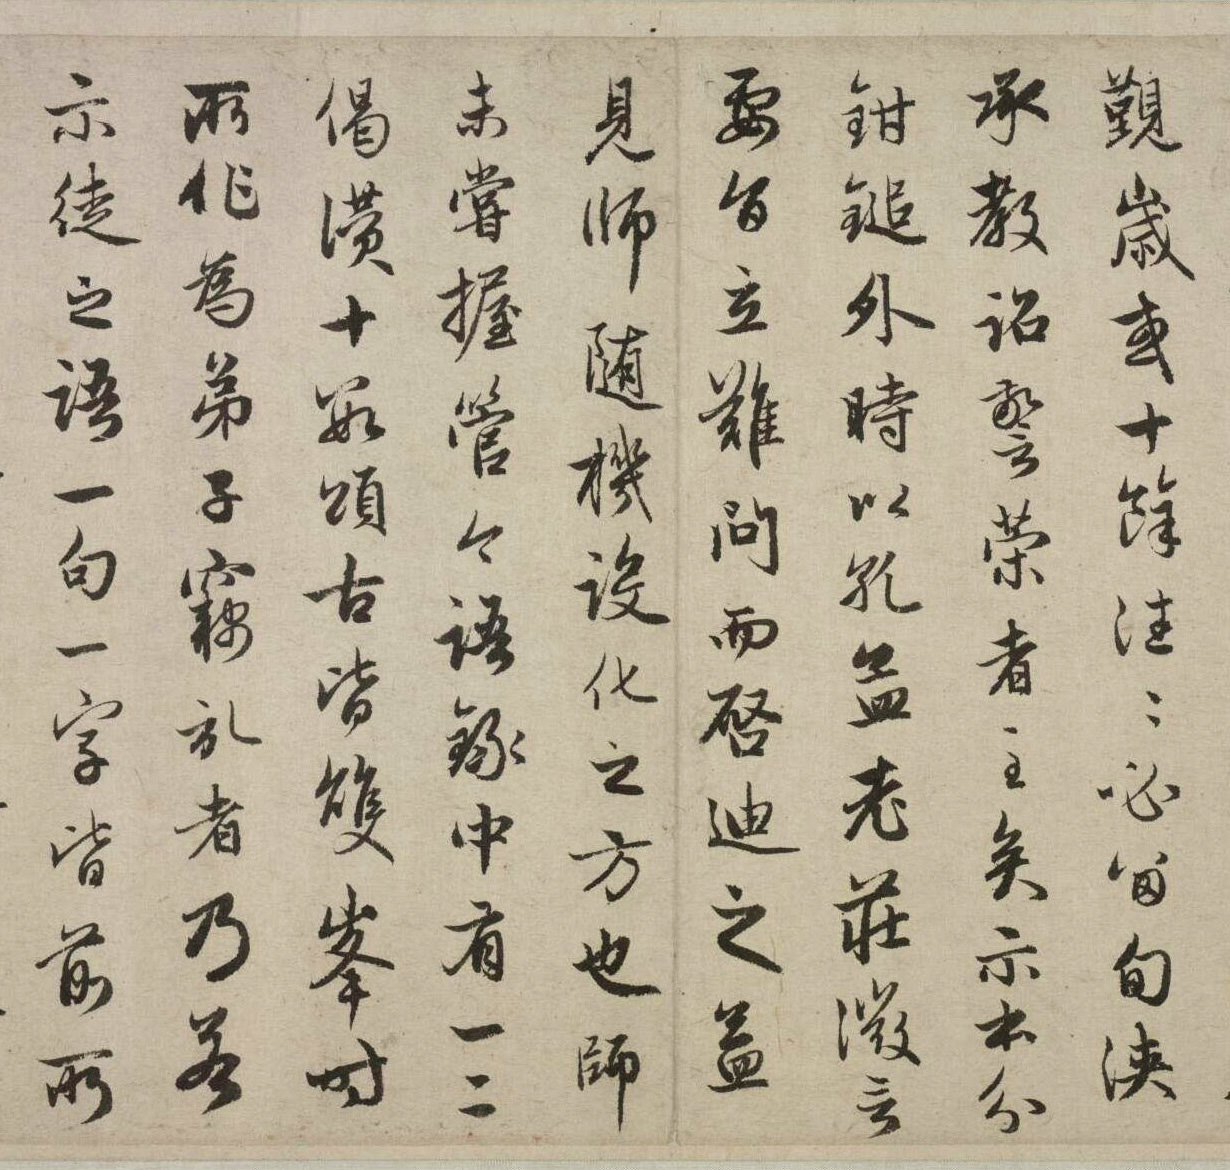 覲歲或十餘往〻必留旬浹
承教詔警策者至矣示本分
鉗鎚外時以孔孟老莊微言
要旨立難問而啓迪之益
見師随機設化之方也師
未嘗握管今語録中有一二
偈讚十數頌古皆雙峯時
所作為弟子竊刊者乃若
示徒之語一句一字皆前所